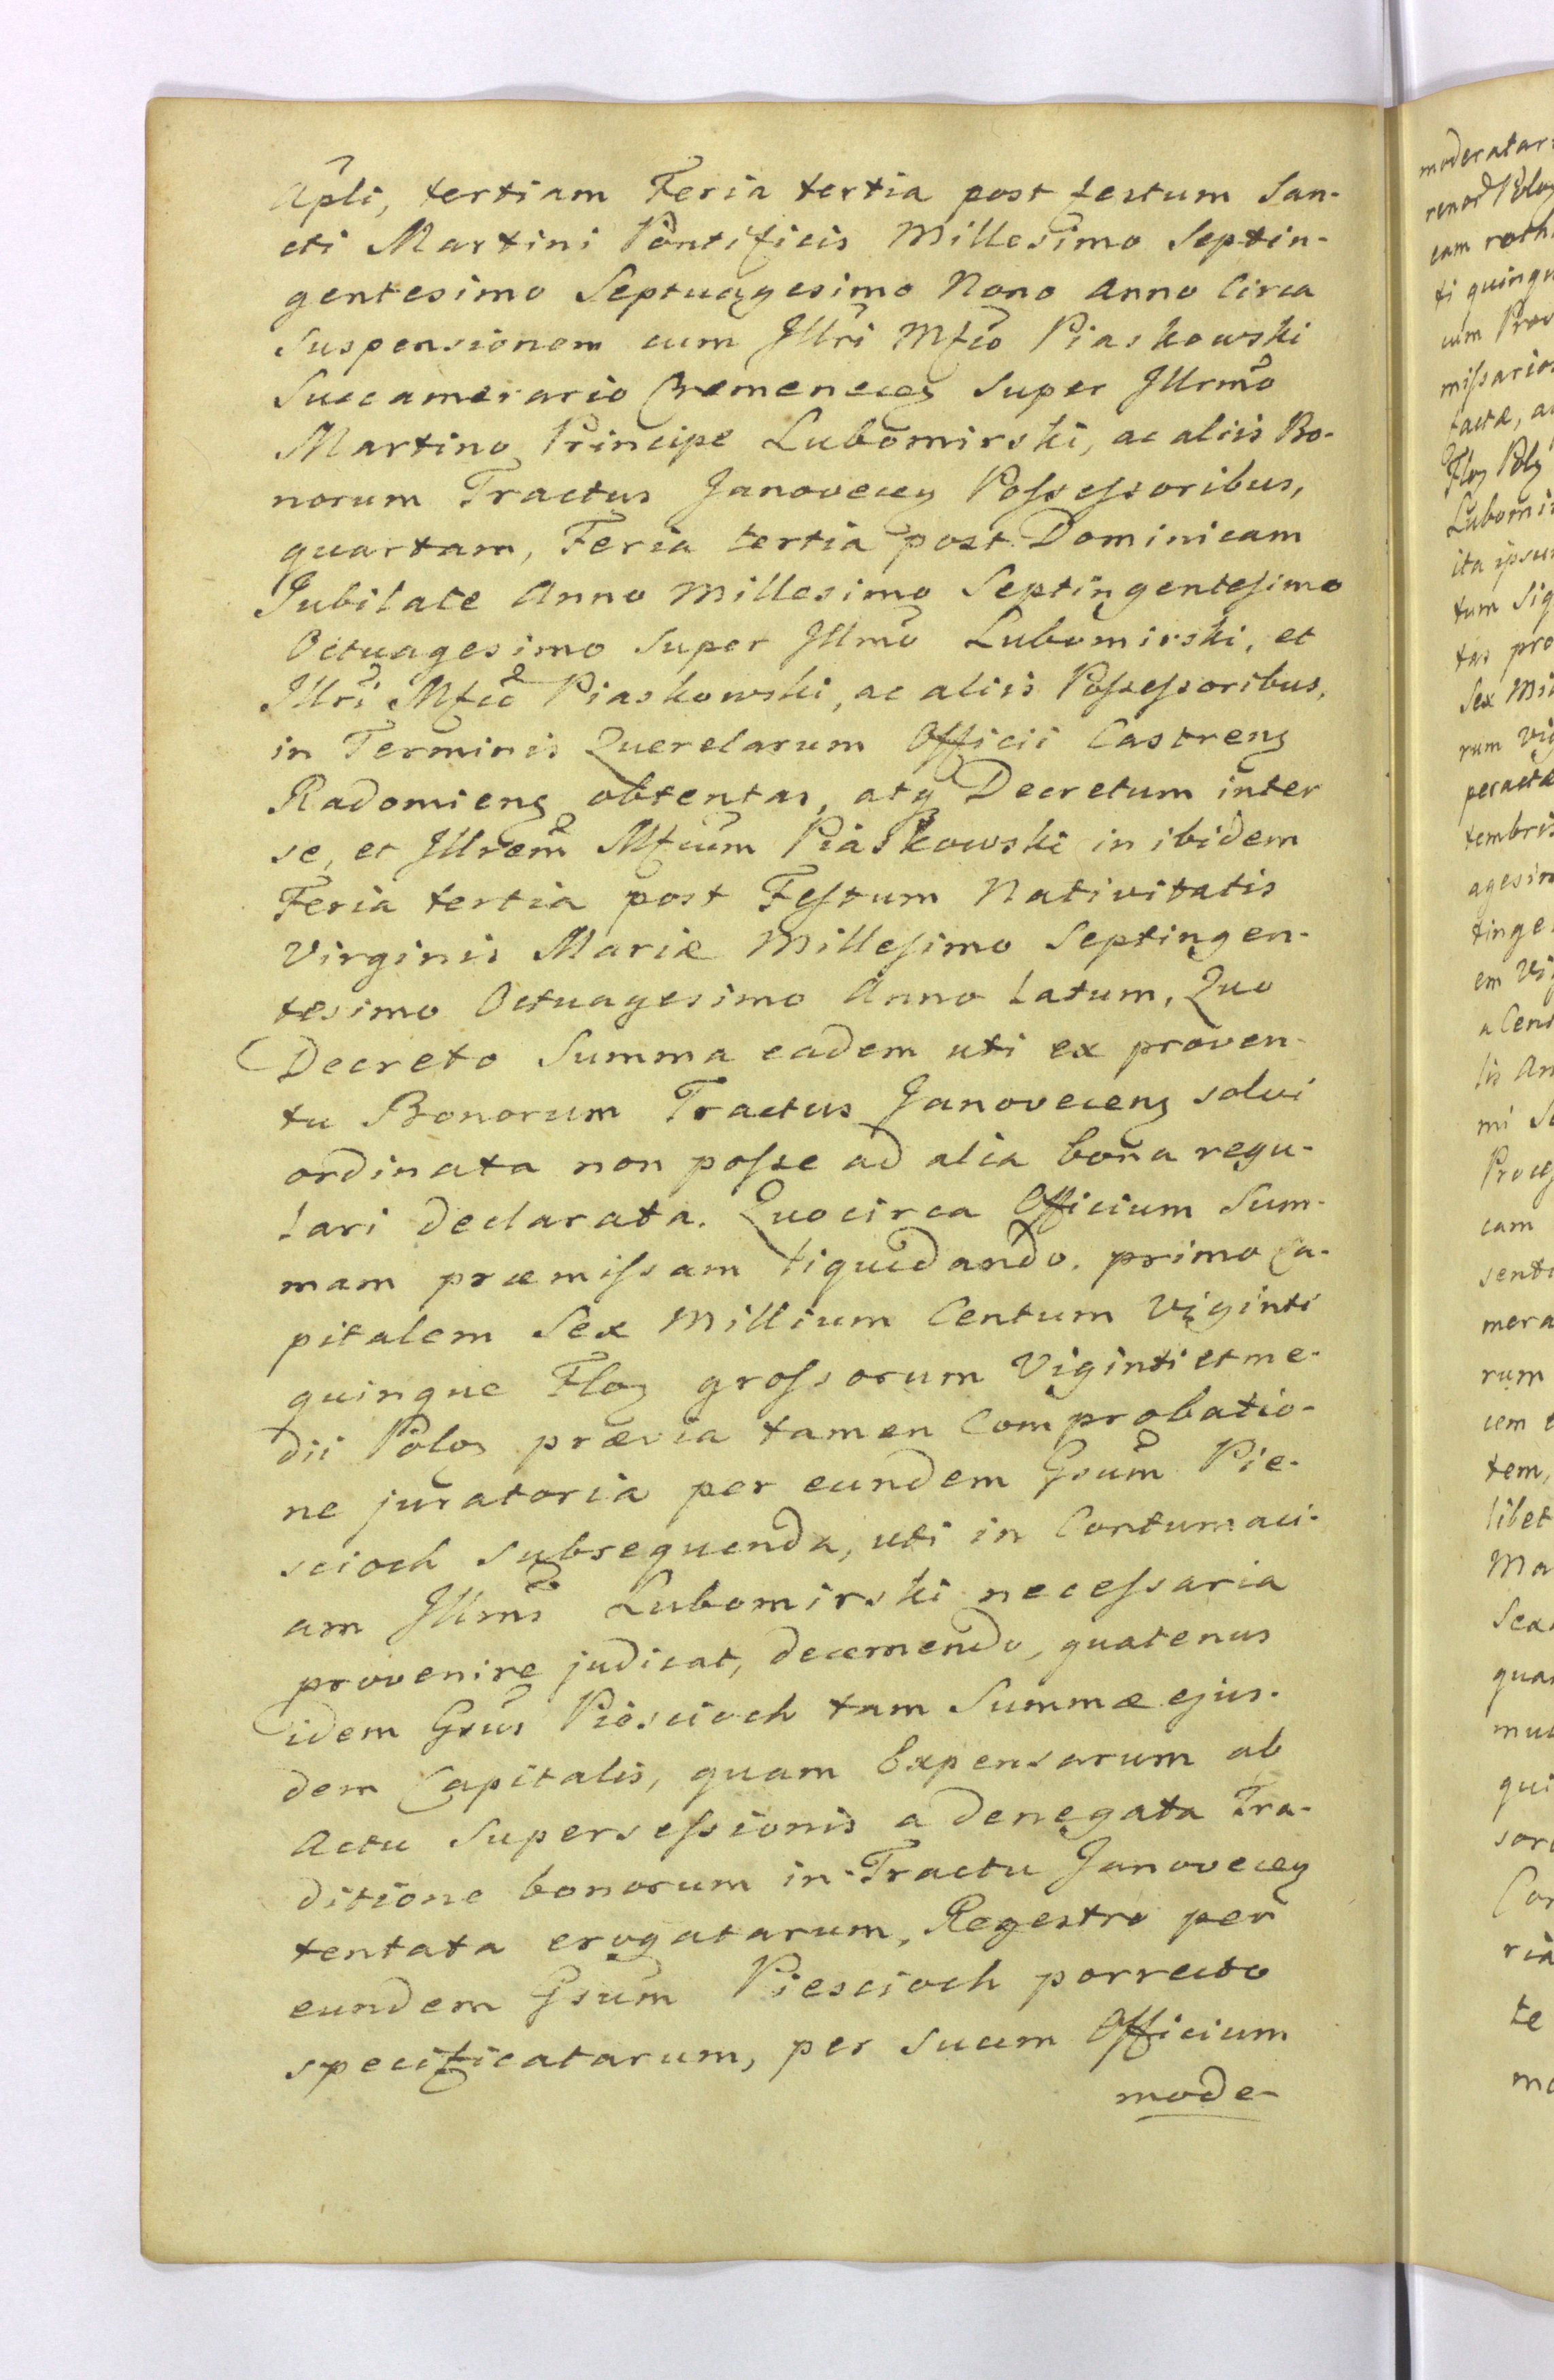 Apli, tertiam Feria tertia post festum San-
cti Martini Pontificis Millesimo Septin-
gentesimo Septuagesimo Nono Anno Circa
Suspensionem cum Jllri Mfco Piaskowski
Succamerario Cremenecen Super Jllrmo
Martino Principe Lubomirski, ac aliis Bo-
norum Tractus Janovecen Possessoribus,
quartam, Feria tertia post Dominicam
Jubilate Anno Millesimo Septingentesimo
Octuagesimo Super Jllmo Lubomirski, et
Jllri Mfco Piaskowski, ac aliis Possessoribus,
in Terminis Querelarum Officii Castrens
Radomiens obtentas, atq Decretum inter
se, et Jllrem Mfcum Piaskowski in ibidem
Feria tertia post Festum Nativitatis
Virginis Mariæ Millesimo Septingen-
tesimo Octuagesimo Anno Latum, Quo
Decreto Summa eadem uti ex proven-
tu Bonorum Tractus Janovecens solvi
ordinata non posse ad alia bona regu-
lari declarata. Quocirca Officium Sum-
mam præmissam liquidando. primo Ca-
pitalem Sex Millium Centum Viginti
quinque Floz grossorum Viginti et me-
dii Poloz prævia tamen Comprobatio-
ne juratoria per eundem Gsum Pie-
scioch subsequenda, uti in Contumaci-
am Jllmi Lubomirski necessaria
provenire judicat, decernendo, quatenus
idem Gsus Piescioch tam Summæ ejus-
dem Capitalis, quam Expensarum ab
Actu Supersessionis a denegata Tra-
ditione bonorum in Tractu Janovecen
tentata erogatarum, Regestro per
eundem Gsum Piescioch porrecto
specificatarum, per suum Officium
mode-